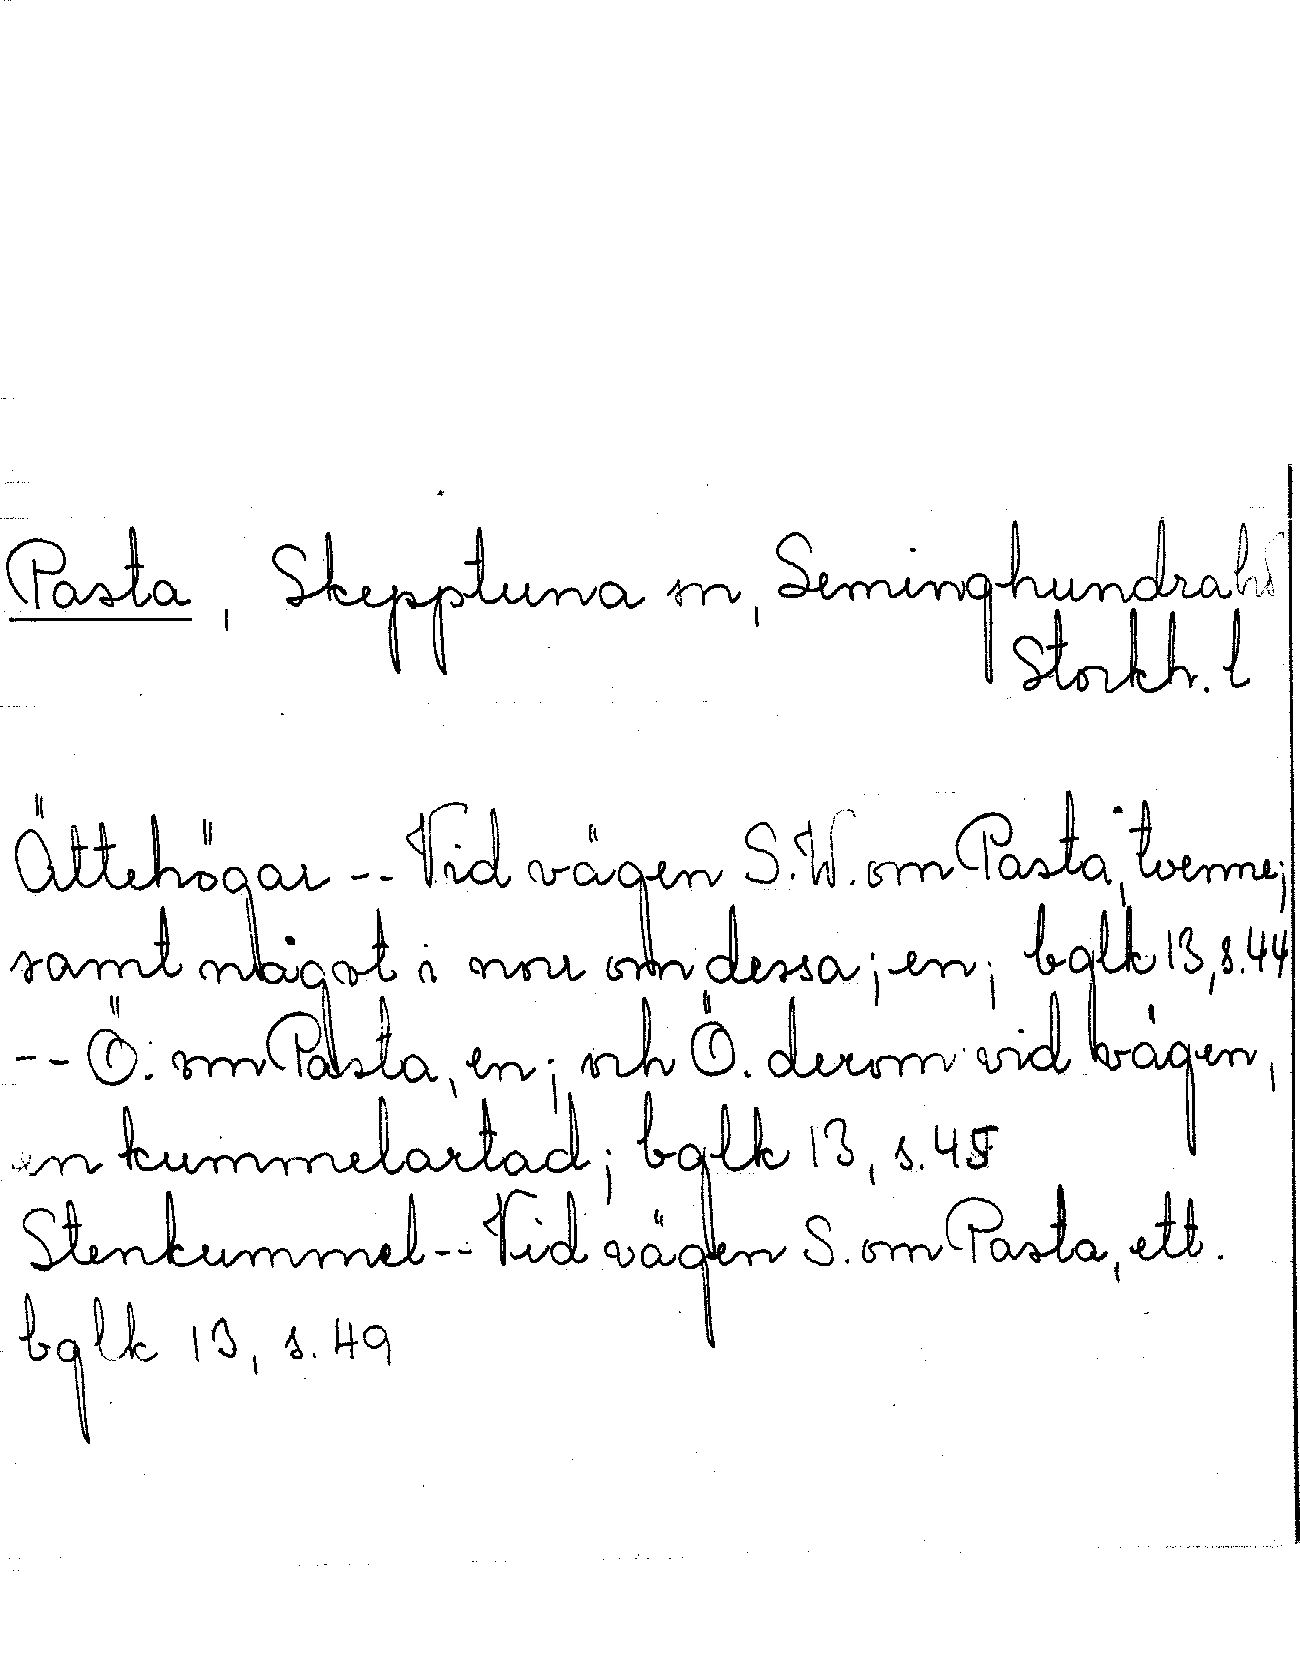 Pasta, Skepptuna sn, Seminghundra hd
Stockh. l
Ättehögar -- Vid vägen S.W. om Pasta, tvenne;
samt något i norr om dessa; en; bglk 13, s. 44
-- Ö. om Pasta, en; och Ö. derom vid vägen,
en kummelartad; bglk 13, s. 45
Stenkummel -- Vid vägen S. om Pasta, ett.
bglk 13, s. 49